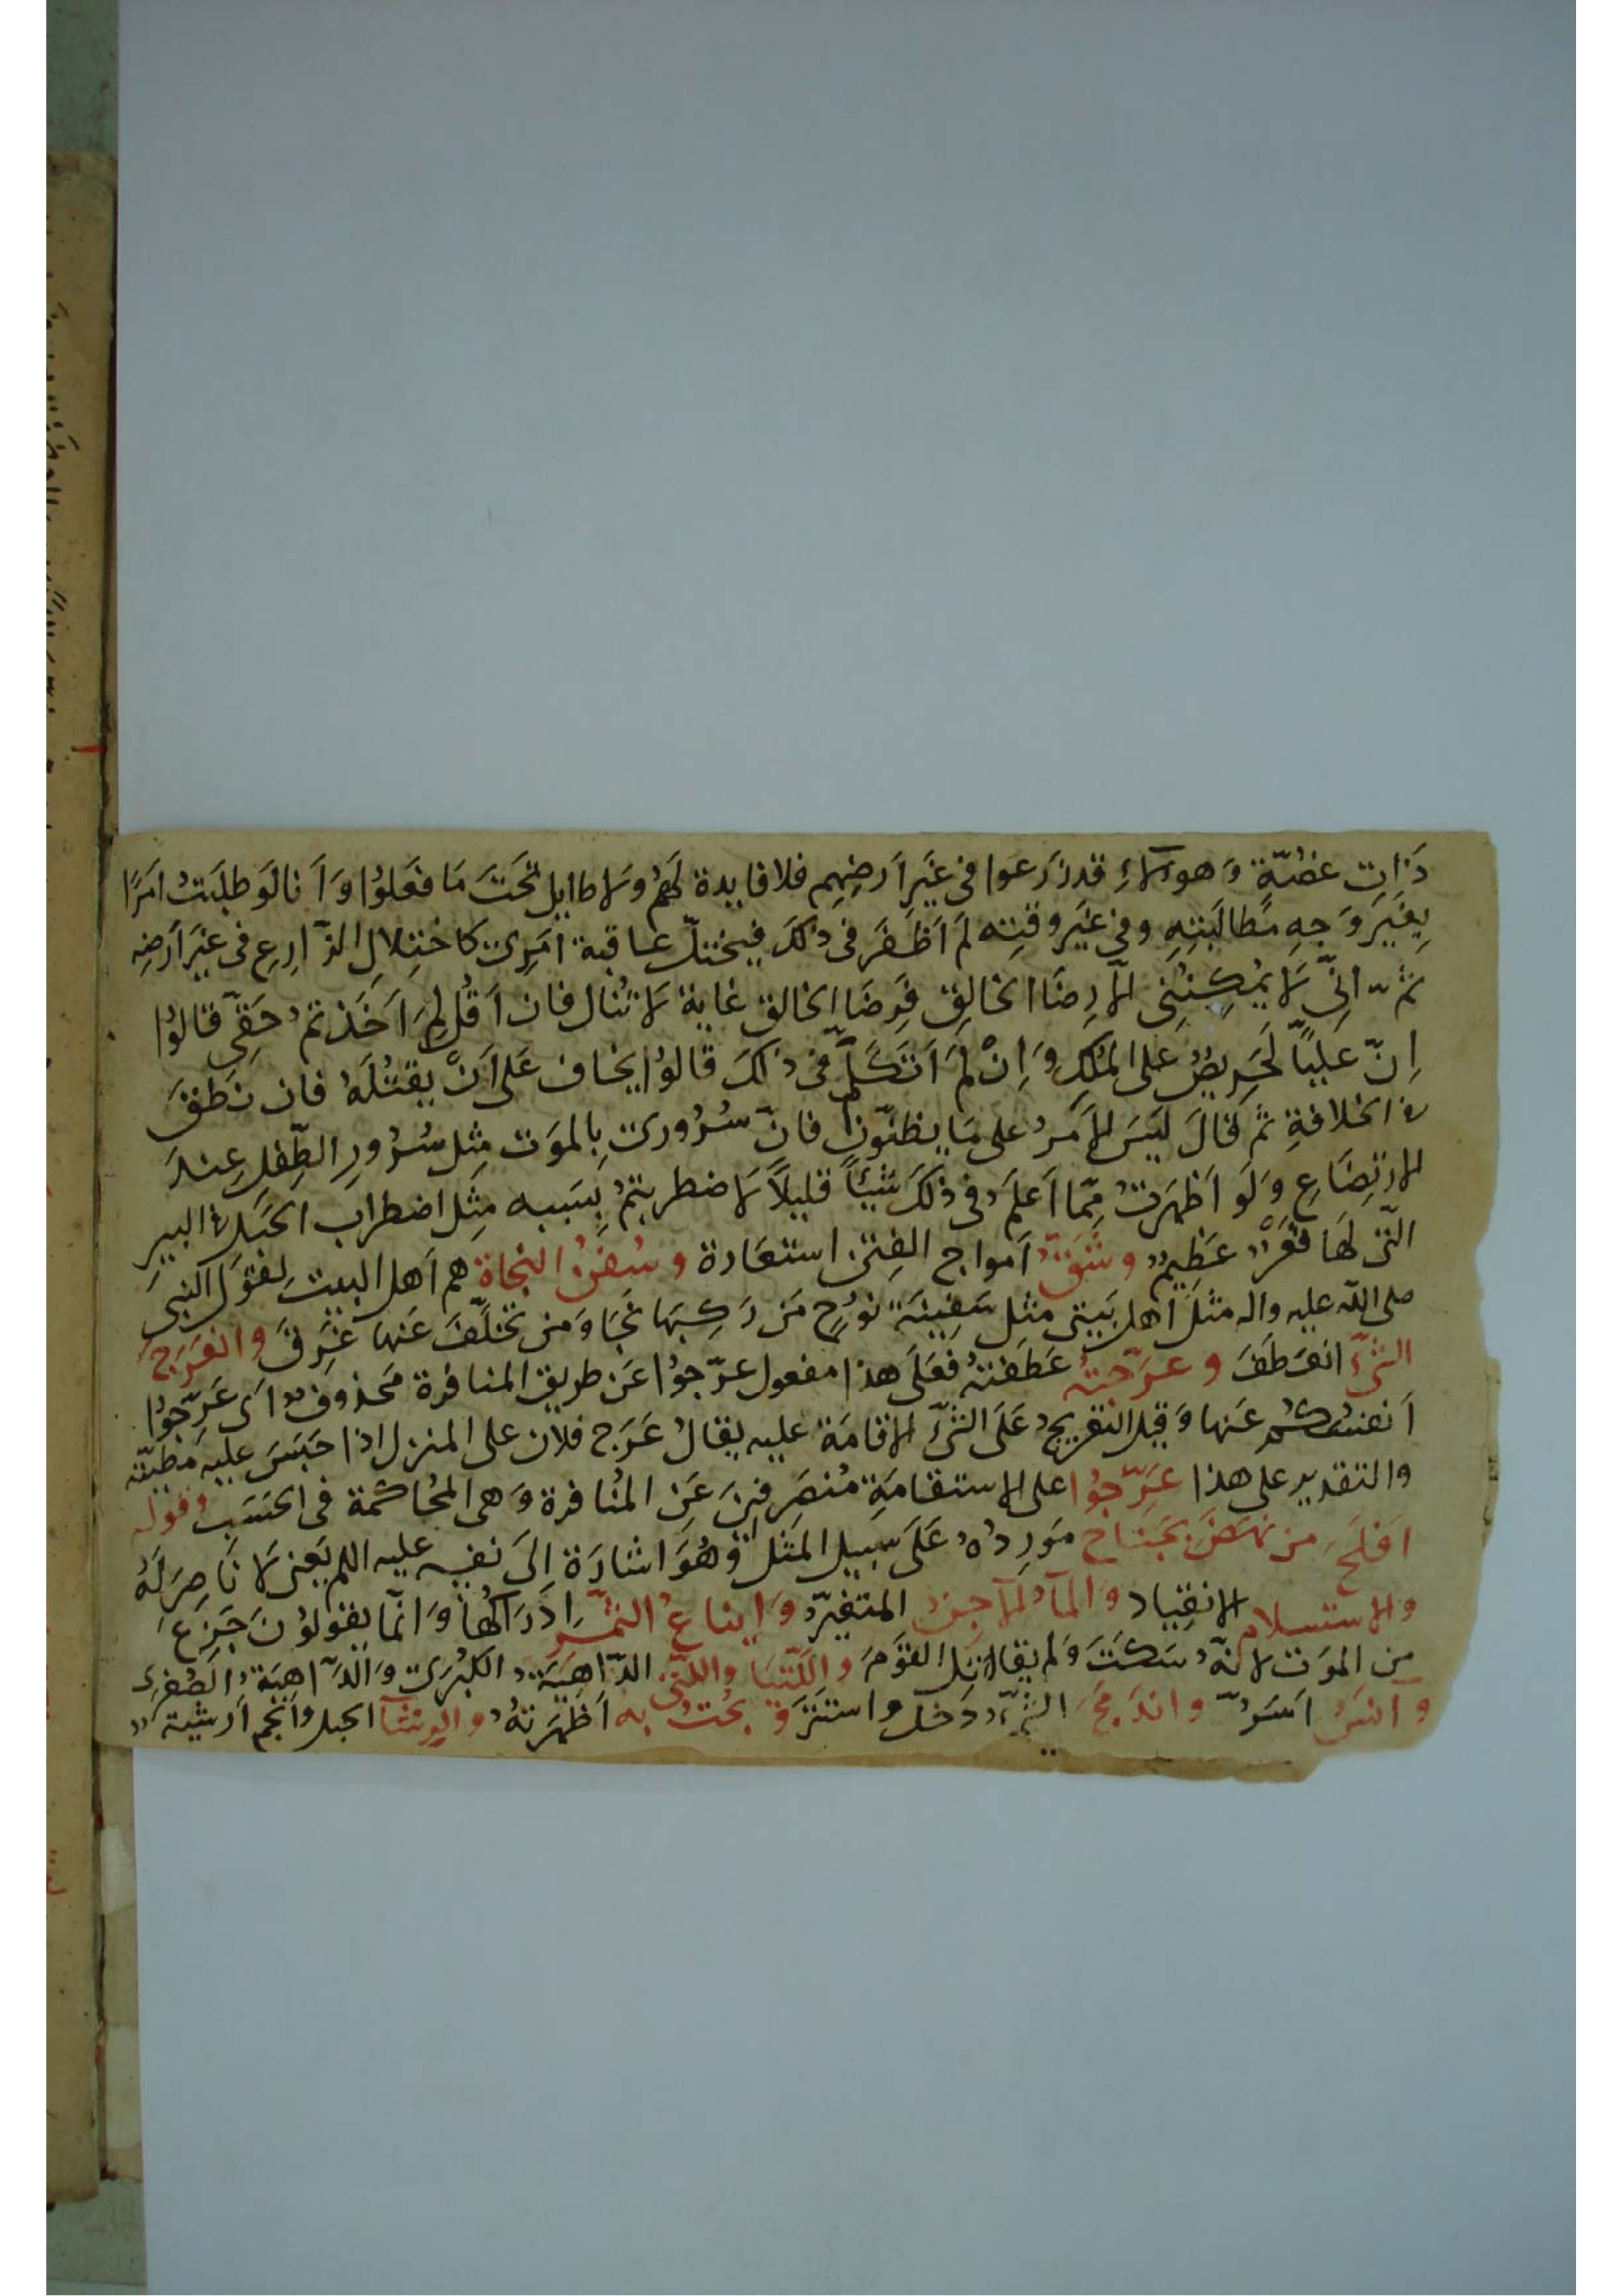 ذَات غصّة وَهولاءِ قدزَرَعوا فى غَيرِ اَرضِهِم فلا فايدة لهُم وَلا طايل تحَتَ مَا فعَلوُا وَاَنا لوَ طلَبتُ امَرًا
بِغيَر وَجهِ مطالبَتِهِ وفى غيَر وقتِه لَم اَظفَر فى ذلكَ فيختلّ عاقبة امَرِى كاختِلالِ الزّارِعِ فى غيَر اَرضِهِ
ثمّ انِّى لَا يمُكِننُِى الّا رِضَا الخالِق فَرِضَا الخالق غاية لَا تُنال فان اَقُل لِمَ اَخَذتمُ حَقِّى قالوُا
اِنّ عليّاً لحَرِيصٌ على المُلكِ وَاِنْ لَم اَتكَلّم فى ذلكَ قالوُا يخاف عَلى اَنْ يقتُلَهُ فان نَطقَ
فى الخلافةِ ثم قالَ ليَسَ الاَمرُ على مَا يظنّون فانّ سُرُورى بِالموَت مِثل سُرُورِ الطّفلِ عِندَ
الارتِضَاعِ وَلوَ اَظهَرتُ مِمّا اَعلَمُ فى ذلكَ شيَئاً قليلاً لَاضطربتمُ بِسَببه مِثَل اضطراب الحَبلَ فى البيرِ
الّتى لهَا قعَرٌ عَظِيمٌ وشَقّ اَمواج الفِتن استعَارة وسُفنُ النجاة هم اَهل البيت لِقوَل النبى
صلى الله عليه واله مثَل اَهل بَيتى مثِل سَفِينَة نوُحٍ مَن رَكِبهَا نجَا وَمَن تخلّفَ عَنها غَرِقَ وانعَرَجَ
الشّئَ انعَطَفَ وعَرّجتهُ عَطَفتهُ فعَلى هذا مفعول عرّجوُا عَن طريق المنافرة محَذوف اَى عَرِّجوُا
اَنفسُكم عَنها وَقيل التعريجُ عَلَى الشّئَ الاقامَة عليه يقالُ عَرَج فلَان على المنزل اذا حَبسَ عليه مَطيّته
والتقدير على هذا عَرِّجُوا على الاستقامَةِ مُنصَرِفِينَ عَنِ المُنافرة وَهى المُحاكمة فى الحَسَبِ وقوله
افلحَ من نهضَ بجَناح مَورِدُهُ عَلَى سبيل المثل وَهُوَ اشارَة اِلَى نفسِه عليه السلم يَعنى لَا نَاصِرَ لهُ
والاستسلام الانقِياد وَالمآءُ الاجِنُ المتغيّر وَايناعُ الثّمَر اِدرَاكُها وَانّما يقولوُنَ جَزِعَ
من الموَت لانّهُ سَكَتَ وَلم يقاتل القوَمَ وَاللّتيَا والّتى الدّاهيَة الكبُرَى وَالدَّاهيَة الصُغرىَ
وآنسُ اَسَرّ واندمجَ الشّئُ دَخل واستترَ وبحُتُ به اَظهَرتهُ والرشآ الحبل والجمع اَرشيَة